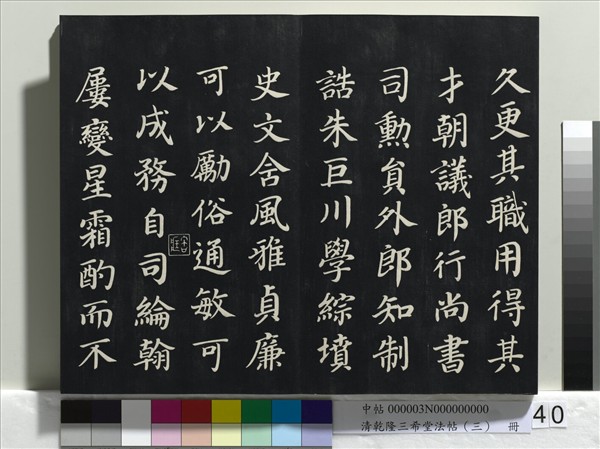 久更其職用得其
才朝議郎行尚書
司勳員外郎知制
誥朱巨川學綜墳
史文含風雅貞廉
可以勵俗通敏可
以成務自司綸翰
屢變星霜酌而不
中帖 000003N000000000
清乾隆三希堂法帖（三） 冊
40